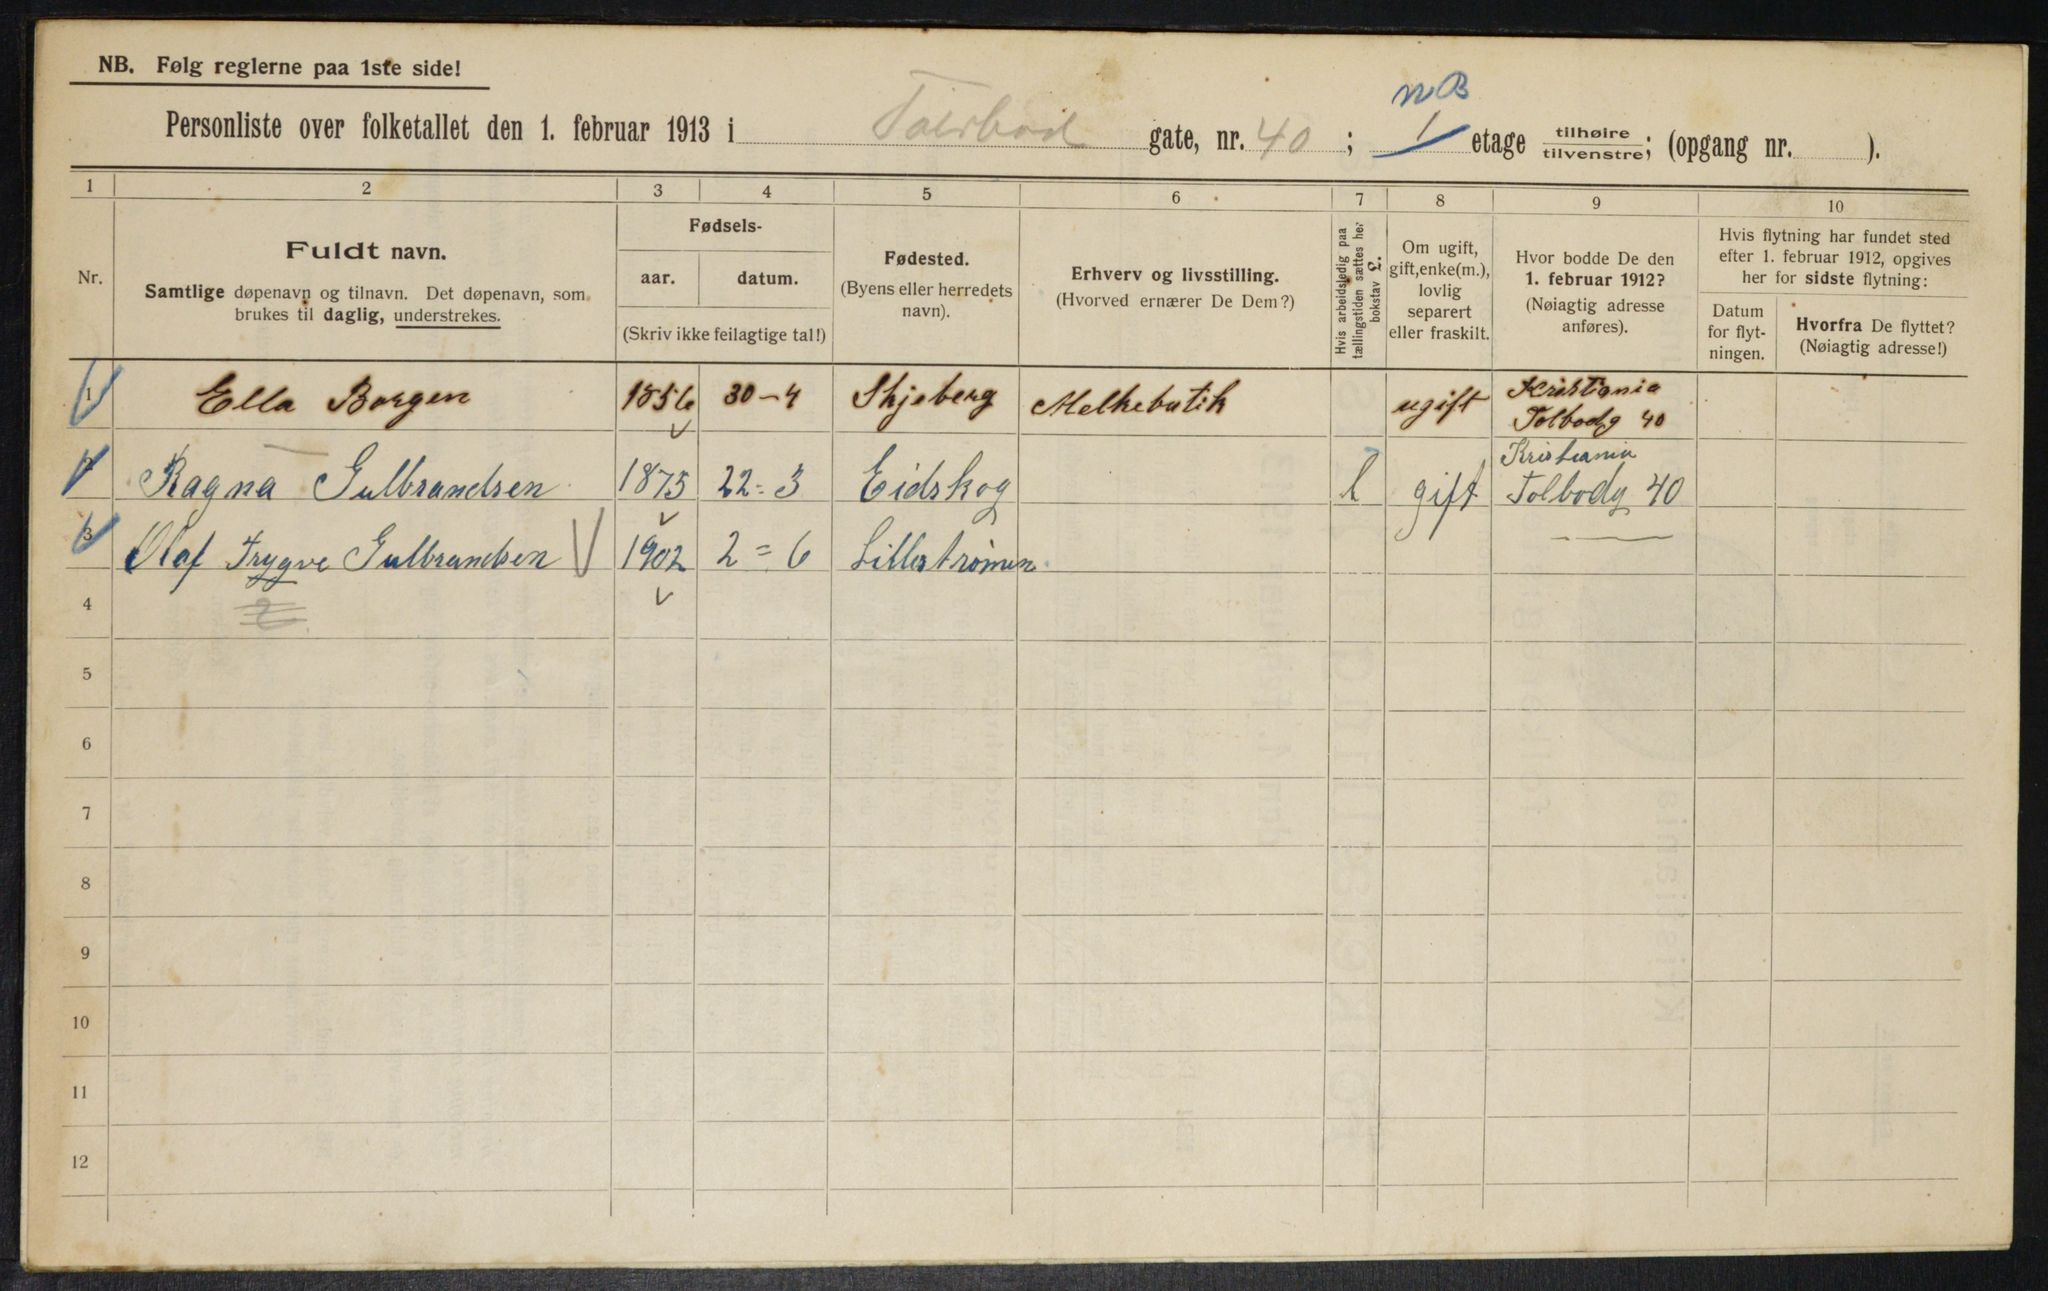 NB. Følg reglerne paa 1ste side!
Personliste over folketallet den 1. februar 1913 i Tolbod gate, nr. 40 ; 1 etage tilhøire/tilvenstre; (opgang nr. ).
1 2 3 4 5 6 7 8 9 10
Nr.
Fuldt navn.
Samtlige døpenavn og tilnavn. Det døpenavn, som
brukes til daglig, understrekes.
Fødsels-
aar. datum.
(Skriv ikke feilagtige tal!)
Fødested.
(Byens eller herredets
navn).
Erhverv og livsstilling.
(Hvorved ernærer De Dem?)
Hvis arbeidsledig paa
tællingstiden sættes her
bokstav l.
Om ugift,
gift, enke(m.),
lovlig
separert
eller fraskilt.
Hvor bodde De den
1. februar 1912?
(Nøiagtig adresse
anføres).
Hvis flytning har fundet sted
efter 1. februar 1912, opgives
her for sidste flytning:
Datum
for flyt-
ningen.
Hvorfra De flyttet?
(Nøiagtig adresse!)
1 Ella Borgen 1856 30-4 Skjeberg Melkebutik ugift Kristiania
Tolbodg 40
2 Ragna Gulbrandsen 1875 22=3 Eidskog l gift Kristiania
Tolbodg 40
3 Olaf Trygve Gulbrandsen 1902 2=6 Lillestrømen
4
5
6
7
8
9
10
11
12